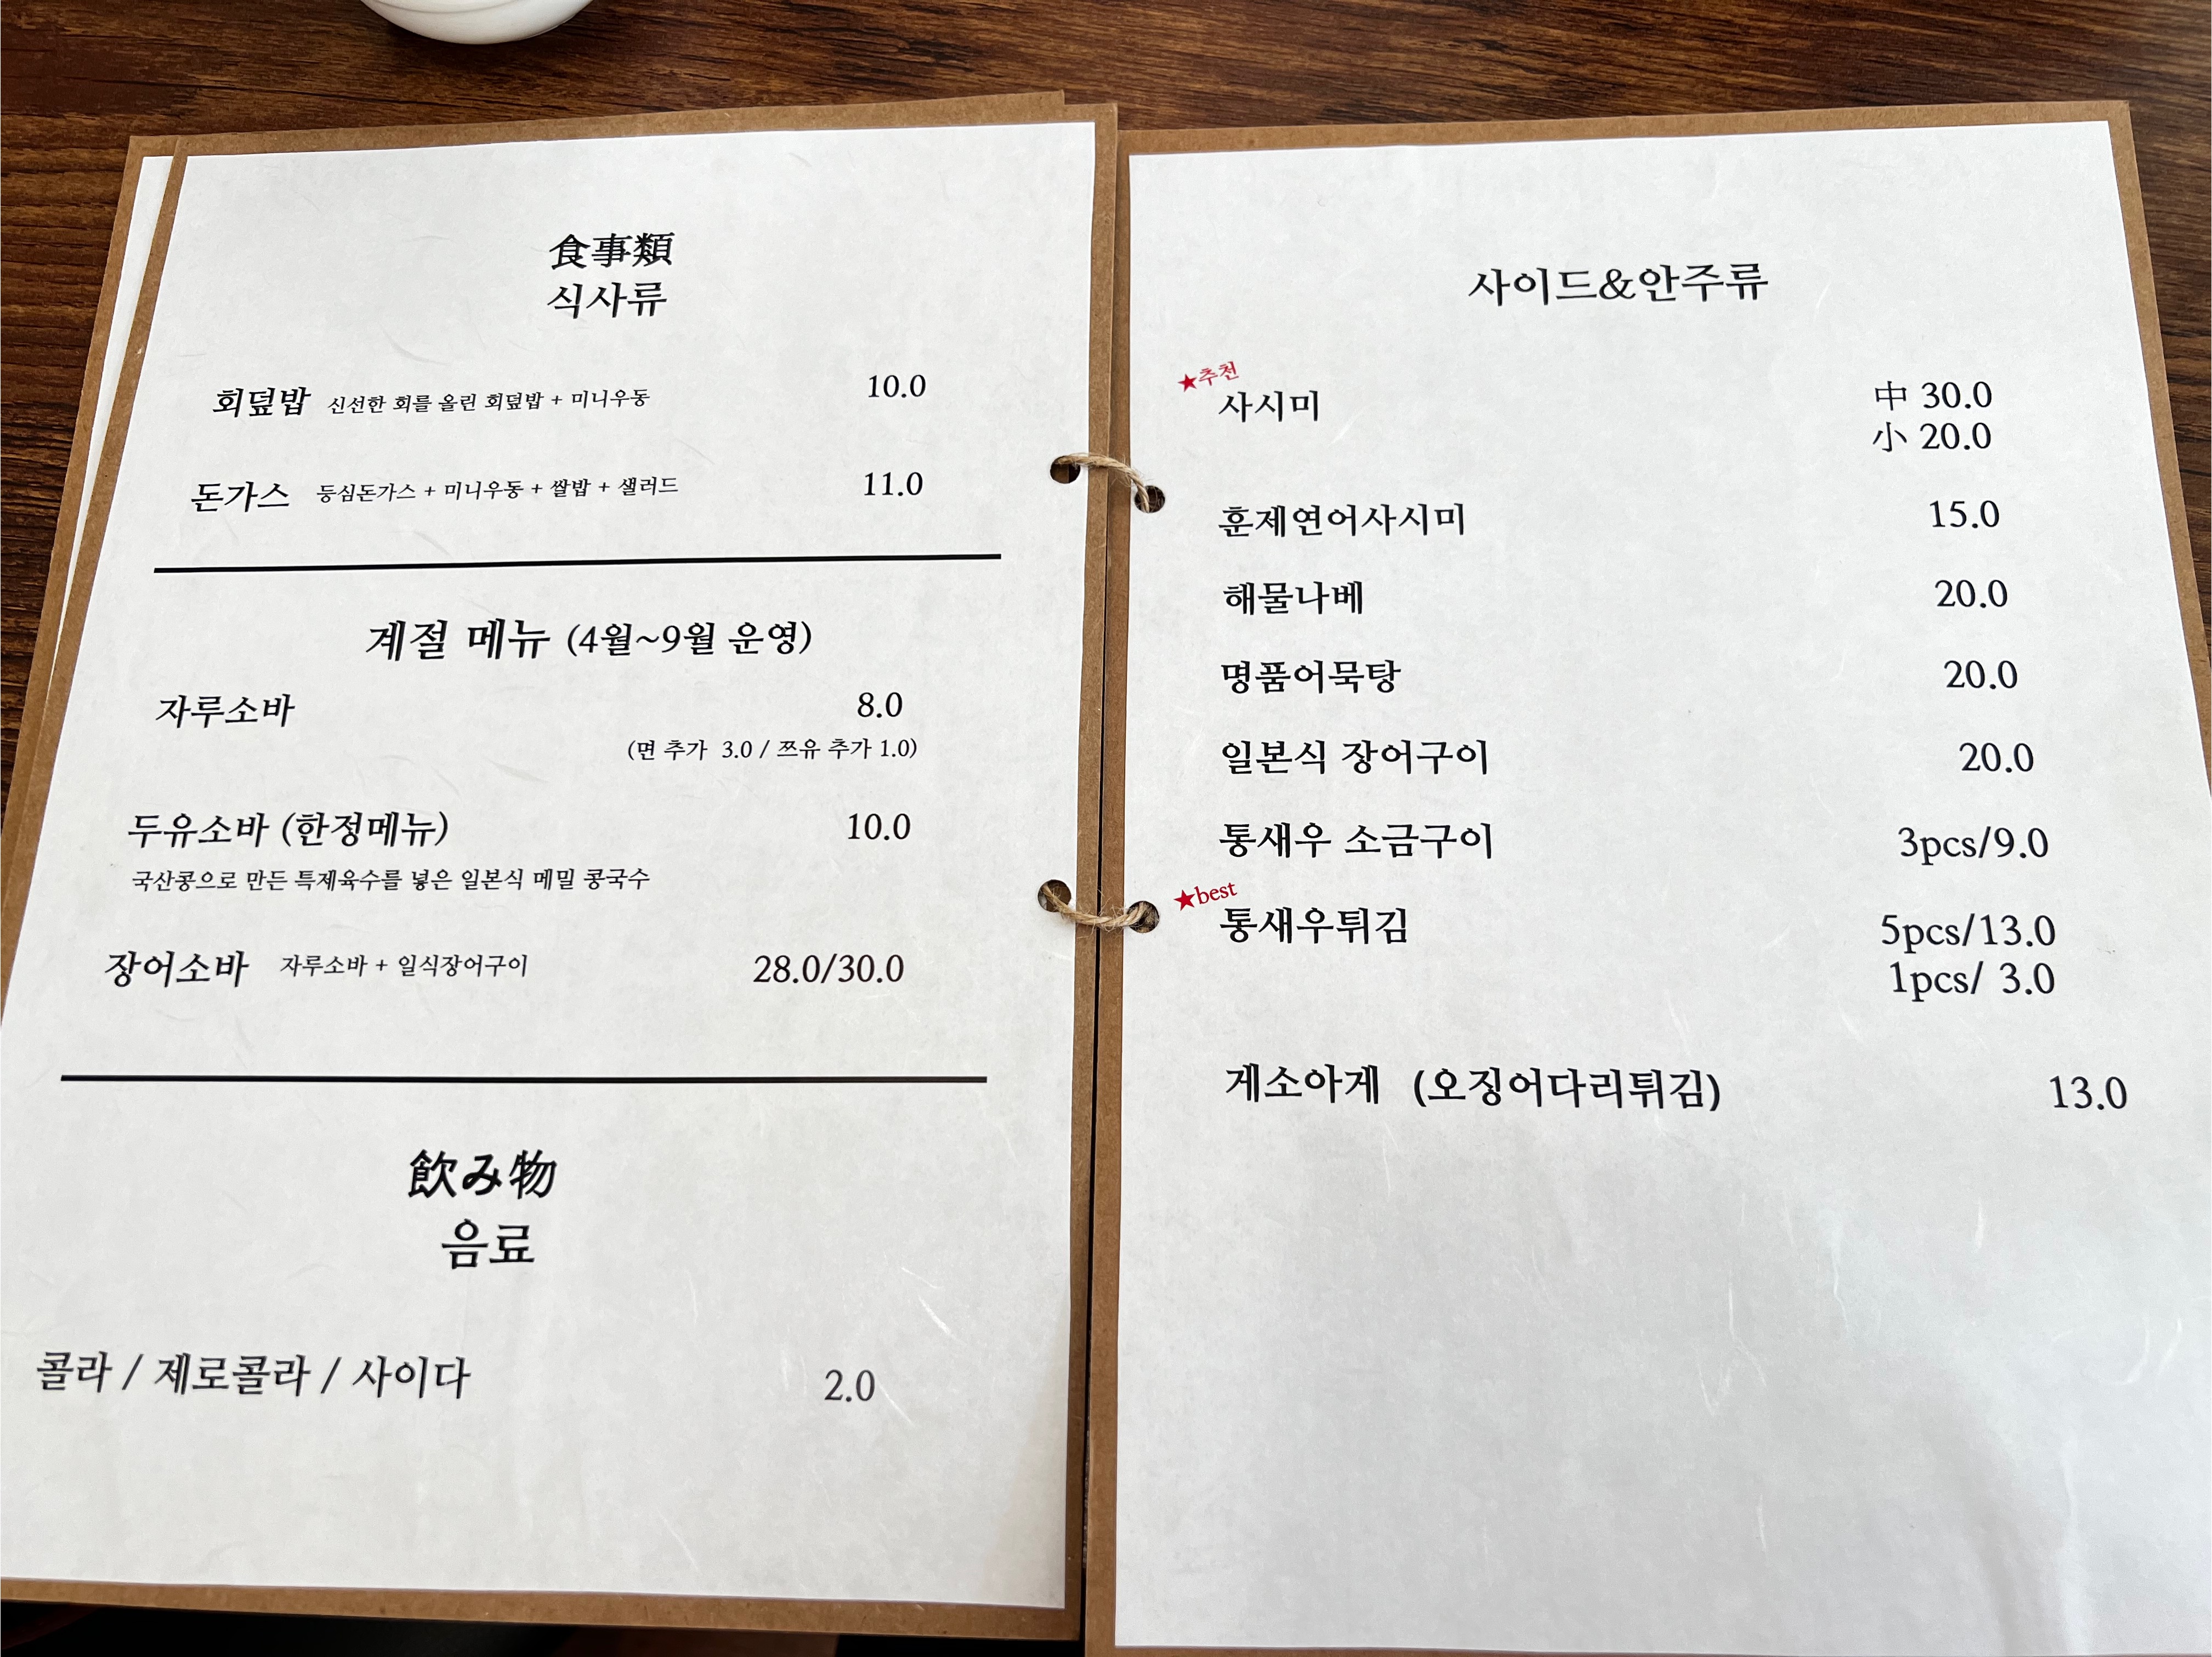 食事類
식사류
회덮밥 신선한 회를 올린 회덮밥 + 미니우동 10.0
돈가스 등심돈가스 + 미니우동 + 쌀밥 + 샐러드 11.0
계절 메뉴 (4월~9월 운영)
자루소바 8.0
(면 추가 3.0 / 쯔유 추가 1.0)
두유소바 (한정메뉴) 10.0
국산콩으로 만든 특제육수를 넣은 일본식 메밀 콩국수
장어소바 자루소바 + 일식장어구이 28.0/30.0
飲み物
음료
콜라 / 제로콜라 / 사이다 2.0
사이드&안주류
★추천
사시미 中 30.0
小 20.0
훈제연어사시미 15.0
해물나베 20.0
명품어묵탕 20.0
일본식 장어구이 20.0
통새우 소금구이 3pcs/9.0
★best
통새우튀김 5pcs/13.0
1pcs/ 3.0
게소아게 (오징어다리튀김) 13.0